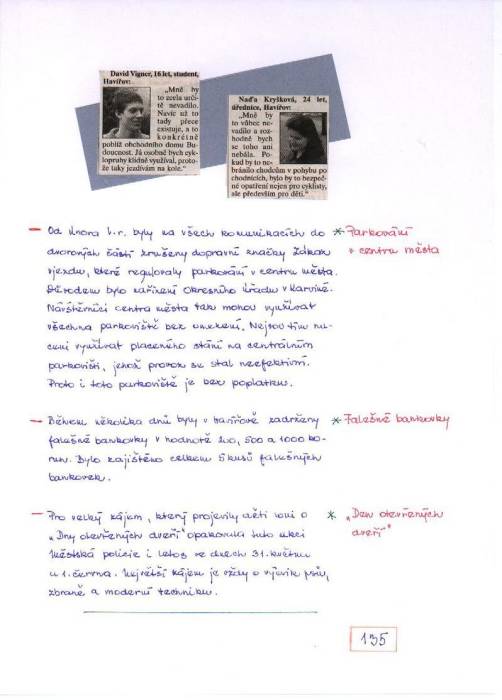 David Vigner, 16 let, student,
Havířov:
„Mně by
to zcela urči-
tě nevadilo.
Navíc už to
tady přece
existuje, a to
konkrétně
poblíž obchodního domu Bu-
doucnost. Já osobně bych cyk-
lopruhy klidně využíval, proto-
že taky jezdívám na kole.“
Naďa Kryšková, 24 let,
úřednice, Havířov:
„Mně by
to vůbec ne-
vadilo a roz-
hodně bych
se toho ani
nebála. Po-
kud by to ne-
bránilo chodcům v pohybu po
chodnících, bylo by to bezpeč-
né opatření nejen pro cyklisty,
ale především pro děti.“
– Od února t.r. byly na všech komunikacích do
dvorových částí zrušeny dopravní značky Zákaz
vjezdu, které regulovaly parkování v centru města.
Důvodem bylo nařízení Okresního úřadu v Karviné.
Návštěvníci centra města tak mohou využívat
všechna parkoviště bez omezení. Nejsou tím nu-
ceni využívat placeného stání na centrálním
parkovišti, jehož provoz se stal neefektivní.
Proto i toto parkoviště je bez poplatku.
* Parkování
v centru města
– Během několika dnů byly v Havířově zadrženy
falešné bankovky v hodnotě 200, 500 a 1000 ko-
run. Bylo zajištěno celkem 5 kusů falešných
bankovek.
* Falešné bankovky
– Pro velký zájem, který projevily děti loni o
„Dny otevřených dveří“ opakovala tuto akci
Městská policie i letos ve dnech 31. května
a 1. června. Největší zájem je vždy o výcvik psů,
zbraně a moderní techniku.
* „Den otevřených
dveří“
135